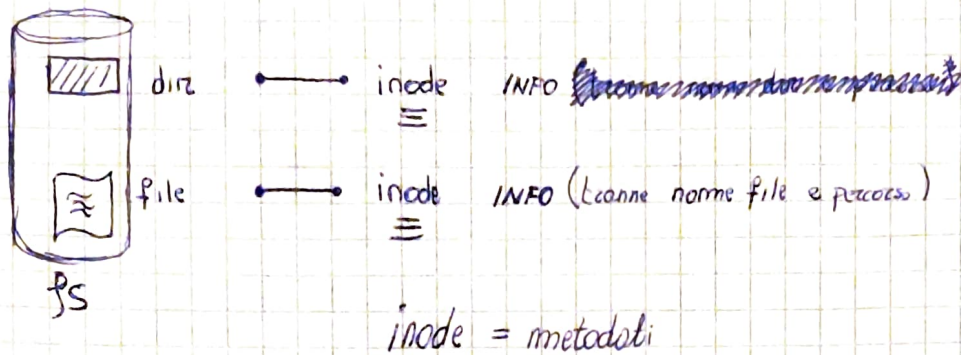 dir inode INFO
file inode INFO (tranne nome file e percorso)
fs
inode = metadati